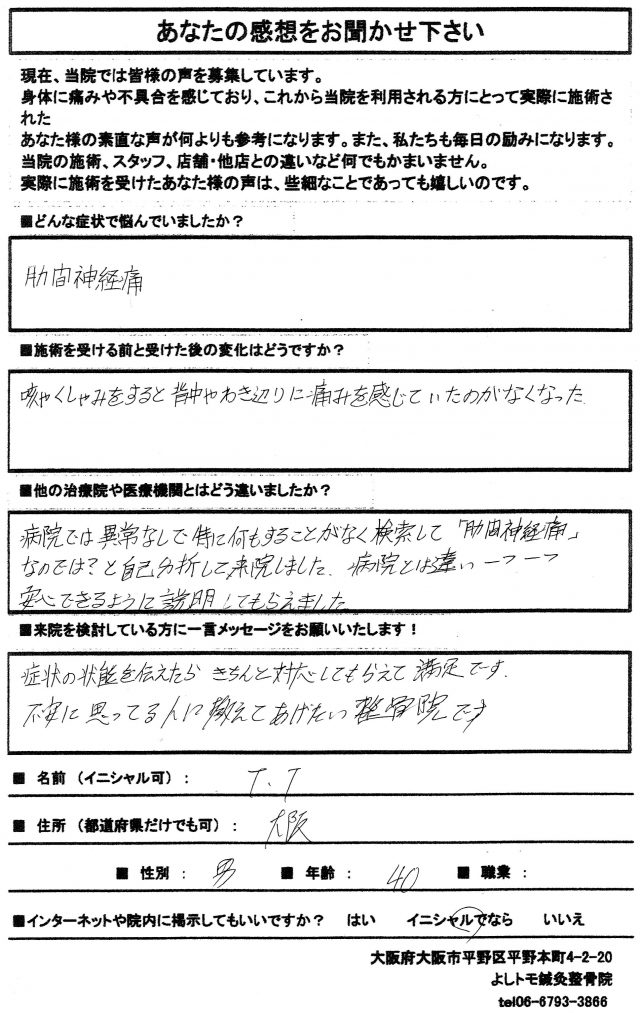 あなたの感想をお聞かせ下さい
現在、当院では皆様の声を募集しています。
身体に痛みや不具合を感じており、これから当院を利用される方にとって実際に施術さ
れた
あなた様の素直な声が何よりも参考になります。また、私たちも毎日の励みになります。
当院の施術、スタッフ、店舗・他店との違いなど何でもかまいません。
実際に施術を受けたあなた様の声は、些細なことであっても嬉しいのです。
■どんな症状で悩んでいましたか？
肋間神経痛
■施術を受ける前と受けた後の変化はどうですか？
咳やくしゃみをすると背中やわき辺りに痛みを感じていたのがなくなった
■他の治療院や医療機関とはどう違いましたか？
病院では異常なしで特に何もすることがなく検索して「肋間神経痛」
なのでは？と自己分析して来院しました。病院とは違い一つ一つ
安心できるように説明してもらえました
■来院を検討している方に一言メッセージをお願いいたします！
症状の状態を伝えたら きちんと対応してもらえて満足です。
不安に思ってる人に教えてあげたい整骨院です
■ 名前（イニシャル可）： T.T
■ 住所（都道府県だけでも可）： 大阪
■ 性別： 男 ■ 年齢： 40 ■ 職業：
■インターネットや院内に掲示してもいいですか？ はい イニシャルでなら いいえ
大阪府大阪市平野区平野本町4-2-20
よしトモ鍼灸整骨院
tel06-6793-3866